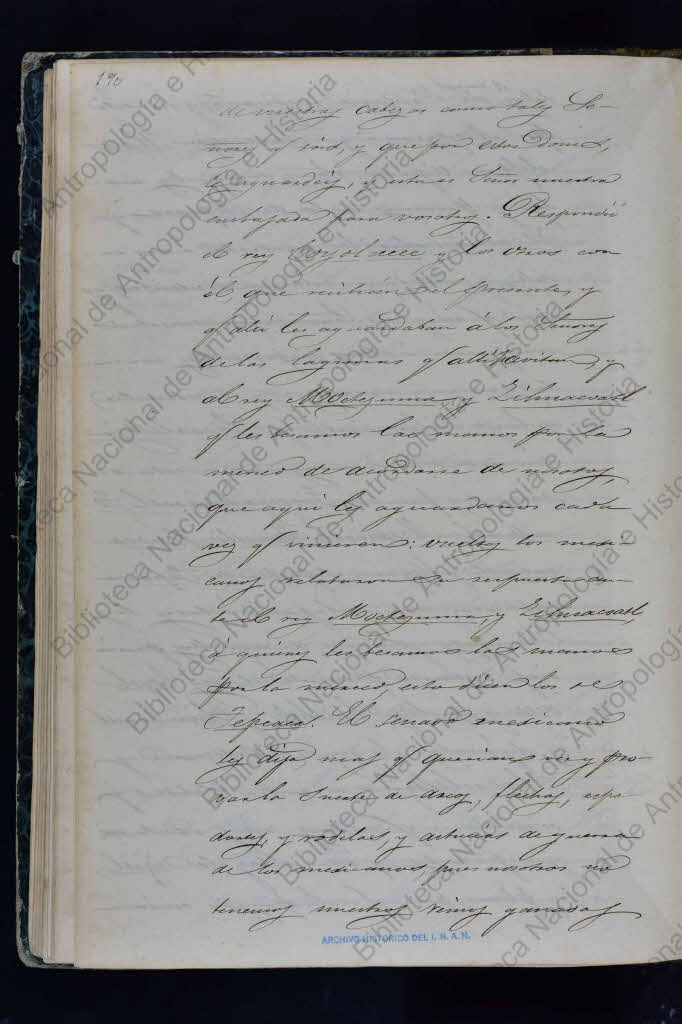 190
de vuestras cabezas como tales Se-
nores q̃ sois, y que por estos dones,
le aguardeis, y esta es Sres nuestra
embajada para vosotros. Respondió
el rey y los otros con
él, que recibian el presente, y
q̃ alli les aguardaban á los Señores
de las lagunas q̃ alli, y
al rey Moctezuma y Zihuacoatl
q̃ les besamos las manos por la
merced de acordarse de nosotros,
que aqui les aguardamos cada
vez q̃ vinieren: vueltos los mexi-
canos relataron su respuesta an-
te el rey Moctezuma, y Zihuacoatl,
á quienes les besamos las manos
por la merced, esto dicen los de
Tepeaca. El senado mexicano
les dijo, mas q̃ querian ver y pro-
var la suerte de arcos, flechas, espa-
dartes, y rodelas, y astucias de guerra
de los mexicanos pues nosotros no
tenemos nuestros reinos ganados
ARCHIVO HISTORICO DEL I. N. A. H.
Biblioteca Nacional de Antropología e Historia